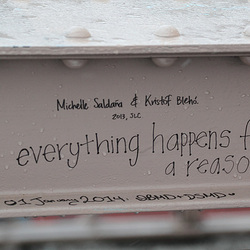 Michelle Saldaña & Kristóf Blehó.
2013, SLC
everything happens f
a reaso
01. January 2014. ØBMD+DSMD